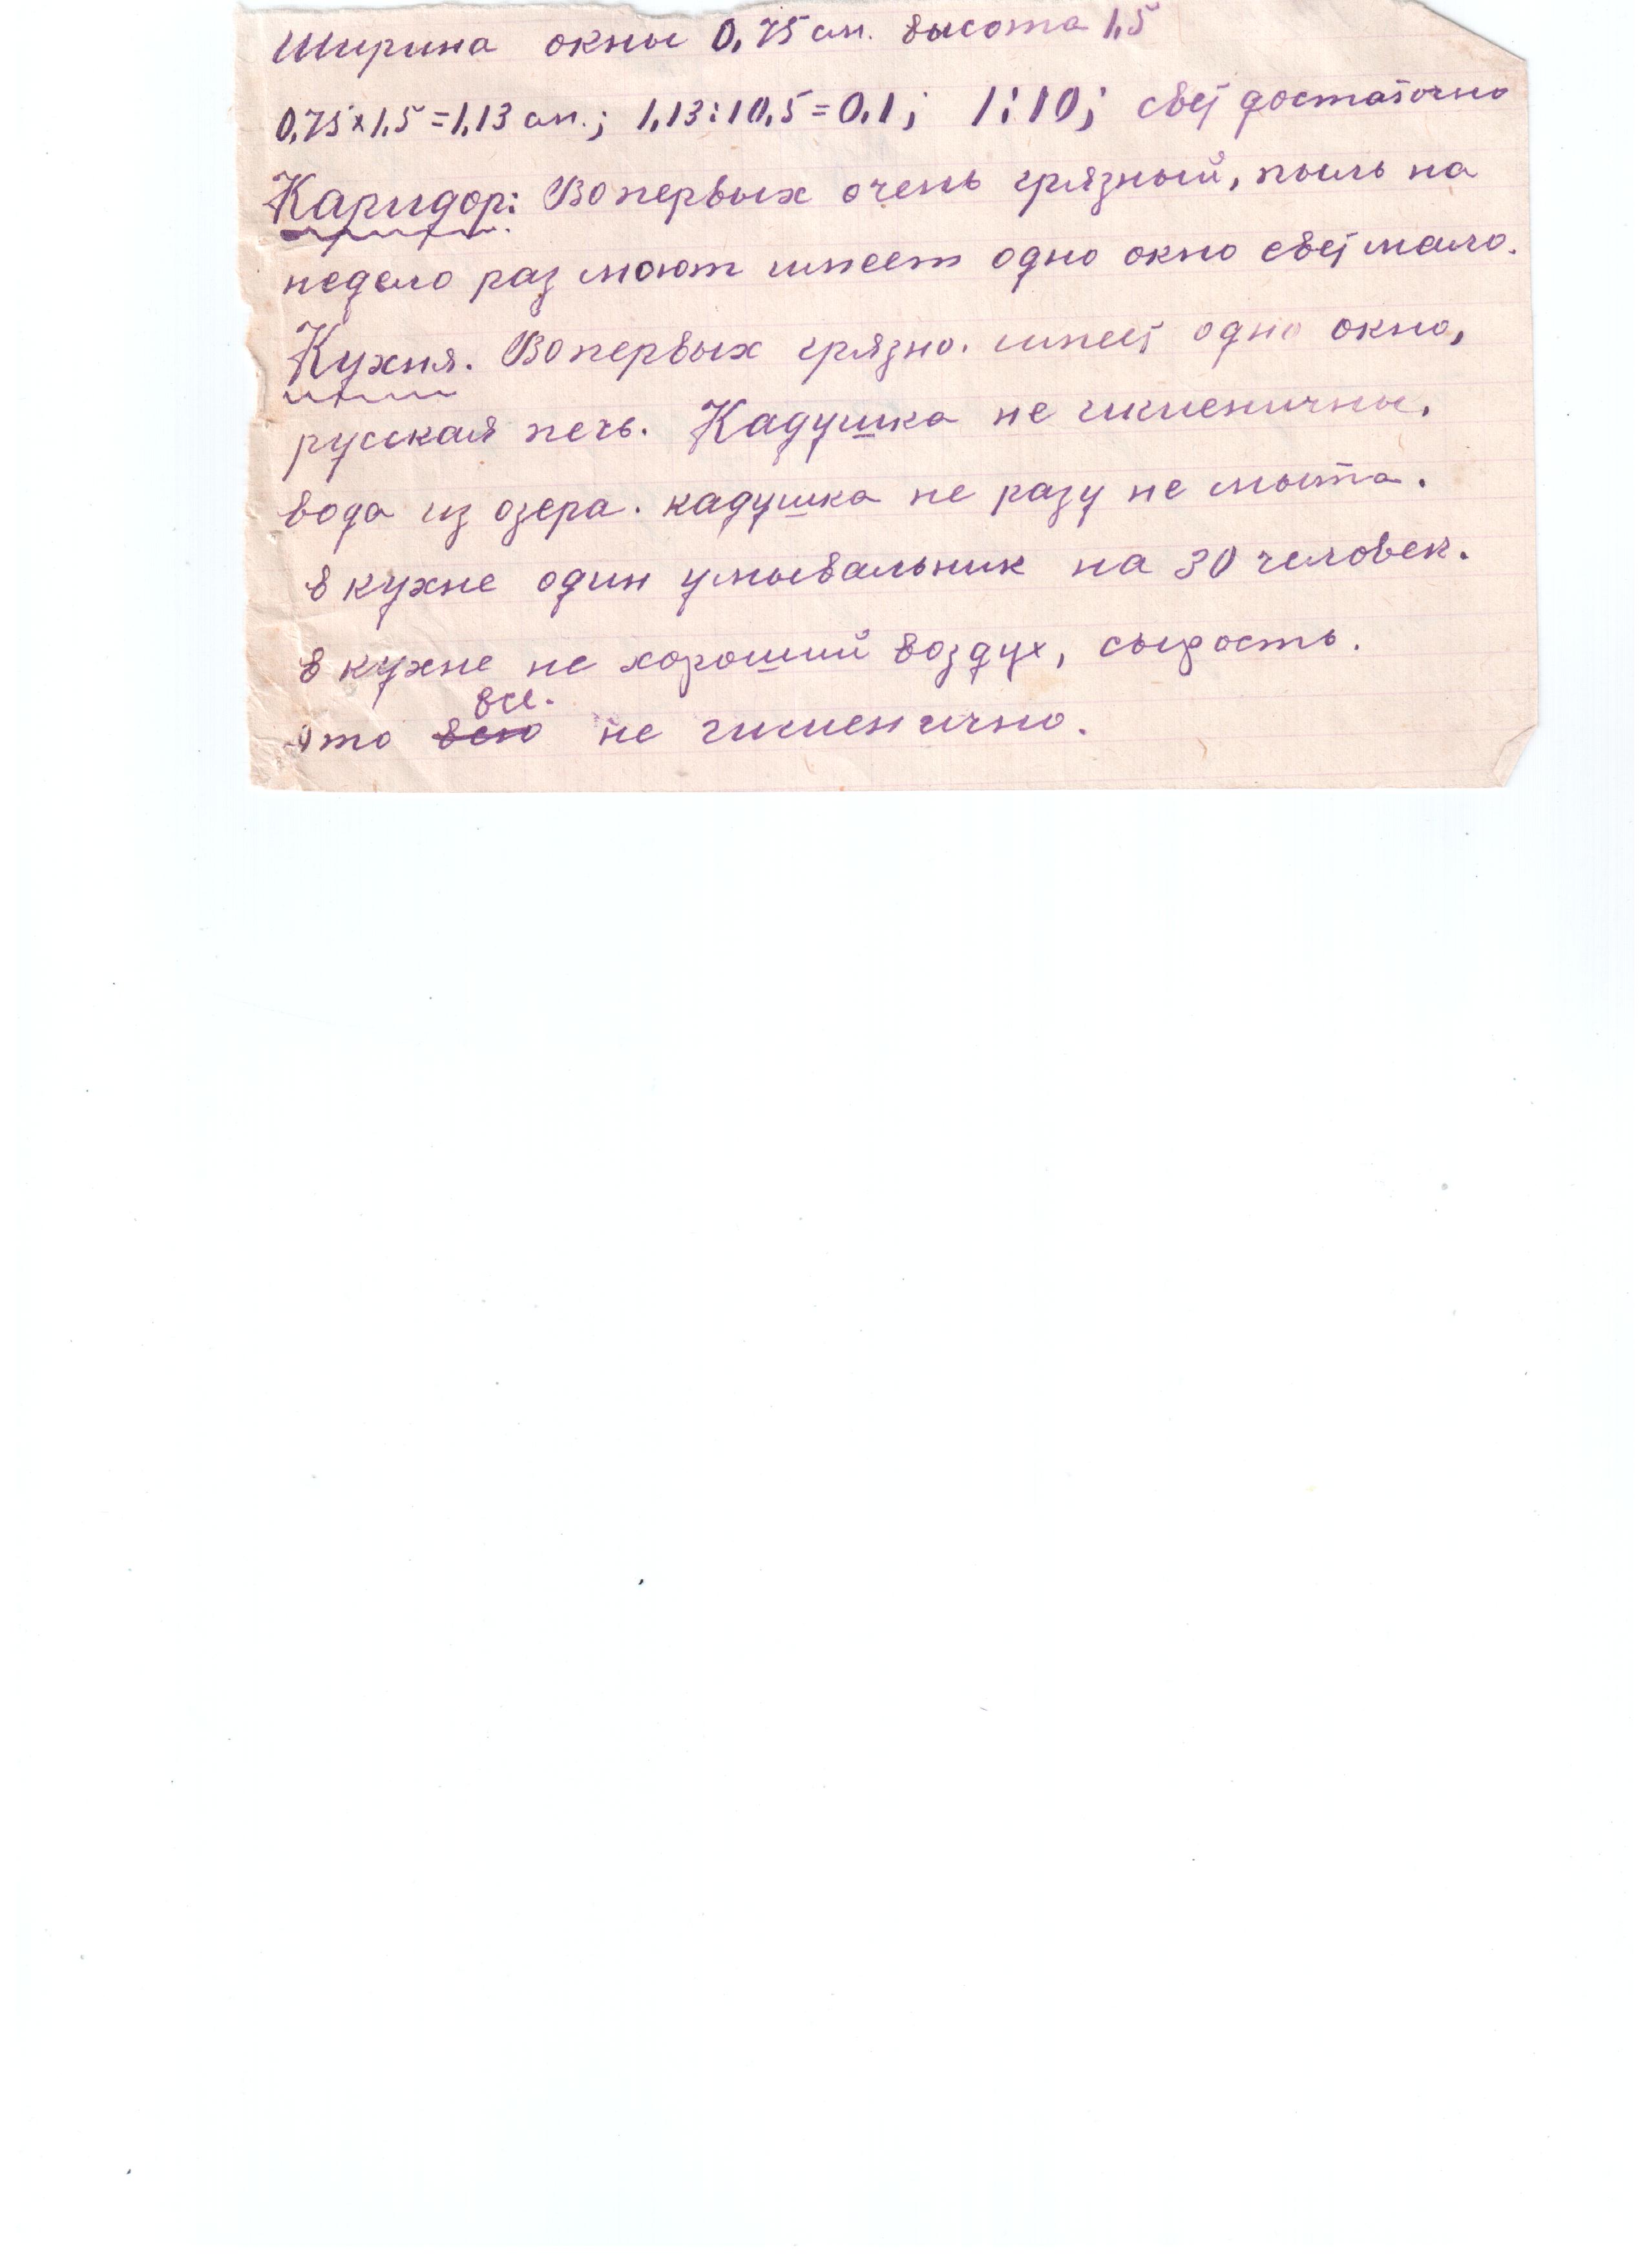 Ширина окны 0,75 см. высота 1,5
0,75 x 1,5 = 1,13 см.; 1,13 : 10,5 = 0,1; 1:10; свет достаточно
Каридор: Вопервых очень грязный, пыль на
неделю раз моют имеет одно окно свет мало.
Кухня. Вопервых грязно. имеет одно окно,
русская печь. Кадушка не гигиеничны,
вода из озера. кадушка не разу не мыта.
в кухне один умывальник на 30 человек.
в кухне не хороший воздух, сырость.
это всю все. не гигиенично.